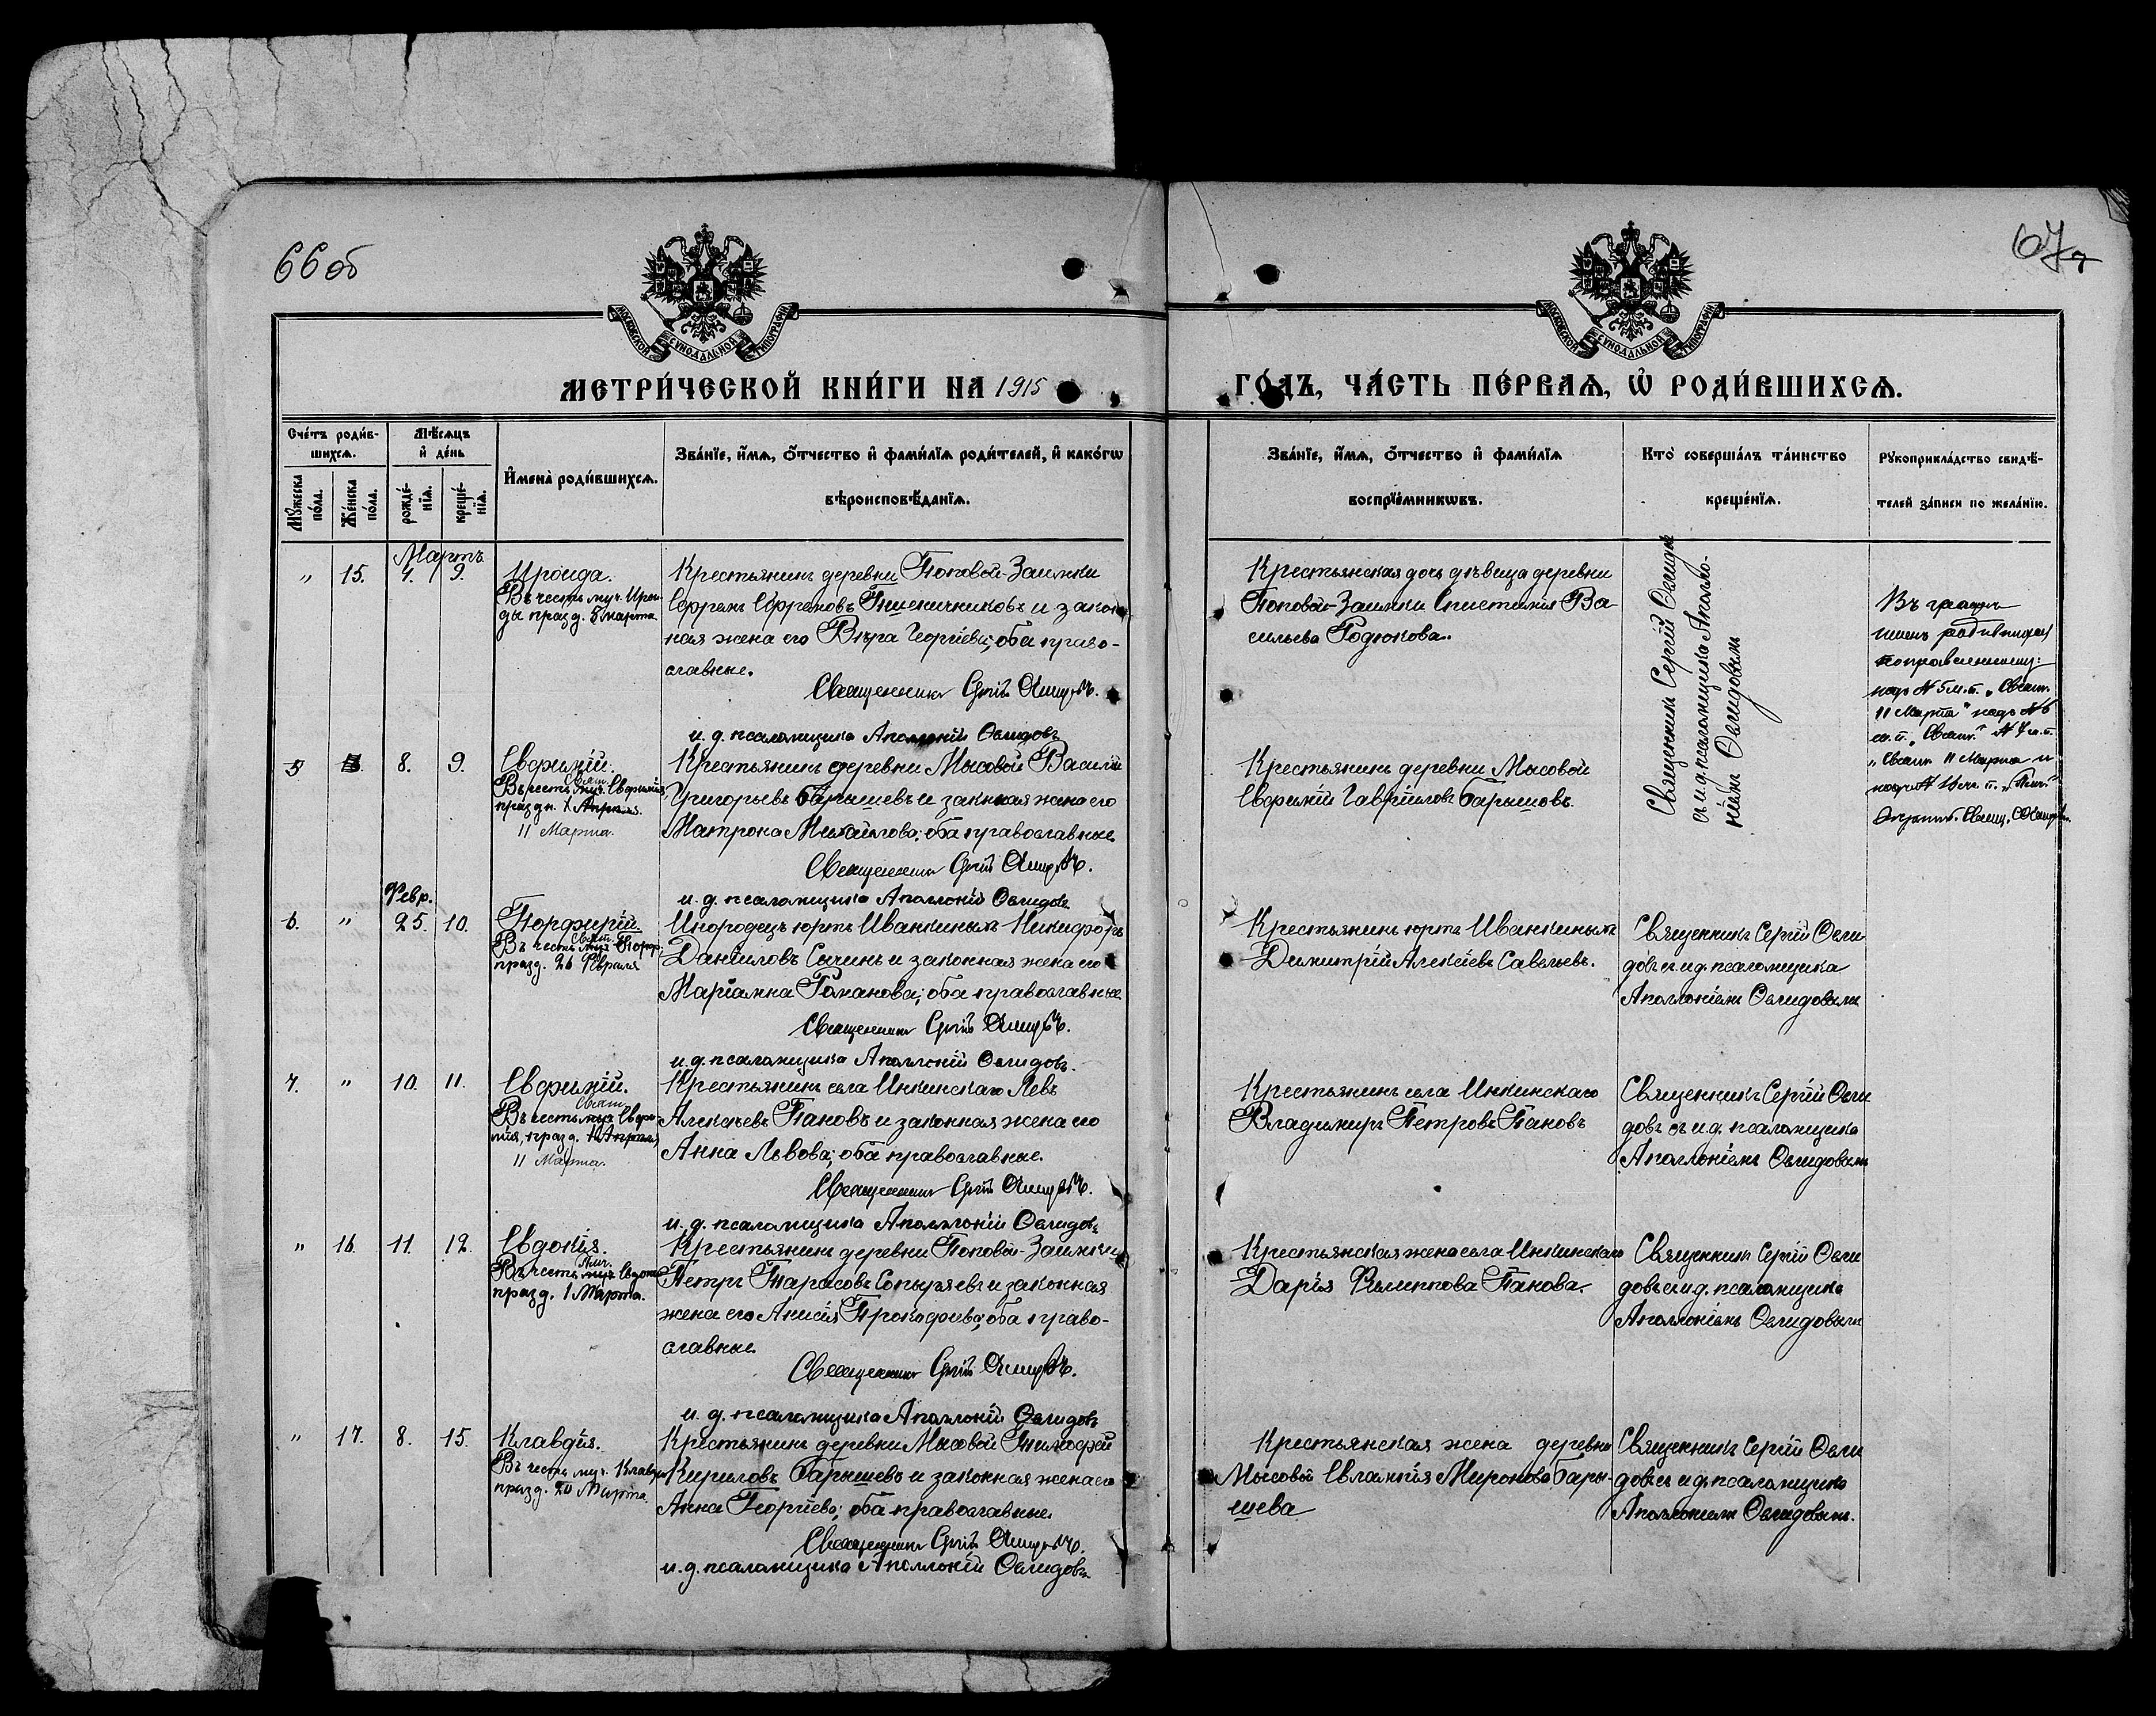 66 об
67
МОСКОВСКОЙ СѴНОДАЛЬНОЙ ТИПОГРАФІИ
МОСКОВСКОЙ СѴНОДАЛЬНОЙ ТИПОГРАФІИ
МЕТРИ́ЧЕСКОЙ КНИ́ГИ НА 1915
ГО́ДЪ, ЧА́СТЬ ПЕ́РВАѦ, Ѡ҆ РОДИ́ВШИХСѦ.
Сче́тъ роди́в-
шихсѧ.
Мꙋ́жеска
по́ла.
Же́нска
по́ла.
Мѣ́сѧцъ
и҆ де́нь
рожде́-
нїѧ.
креще́-
нїѧ.
И҆мена̀ роди́вшихсѧ.
Зва́нїе, и҆́мѧ, ѻ҆́тчество и҆ фами́лїѧ роди́телей, и҆ како́гѡ
вѣроисповѣ́данїѧ.
Зва́нїе, и҆́мѧ, ѻ҆́тчество и҆ фами́лїѧ
воспрїе́мникѡвъ.
Кто̀ соверша́лъ та́инство
креще́нїѧ.
Рꙋкоприкла́дство свидѣ́-
телей за́писи по жела́нїю.
Мартъ
" 15. 4. 9.
Ироида.
Въ честь муч. Ирои-
ды празд. 5 марта
Крестьянинъ деревни Поповой-Заимки
Ефремъ Ефремовъ Пшеничниковъ и закон-
ная жена его Вѣра Георгіева; оба право-
славные.
Священникъ Сергій
и. д. псаломщика Аполлоній Овлидовъ
Крестьянская дочь дѣвица деревни
Поповой-Заимки Ва-
сильева Родюкова.
Священникъ Сергій
съ и. д. псаломщика Аполло-
ніемъ Овлидовымъ
Въ графѣ
именъ родившихся
поправленному:
надъ № 5 м. п. "Свят.
11 Марта" надъ № 6
м. п. "Свят." № 7 м. п.
"Свят. 11 Марта и
5 8. 9.
Евфимій.
Въ честь муч. Свят. Евфимія,
праздн. 1 Апрѣля.
11 Марта.
Крестьянинъ деревни Мысовой Василій
Григорьевъ Барышевъ и законная жена его
Матрона Михайлова; оба православные
Священникъ Сергій
и. д. псаломщика Аполлоній Овлидовъ
Крестьянинъ деревни Мысовой
Евфимій Гавріиловъ Барышовъ.
Февр.
6. " 25. 10.
Порфирій.
Въ честь муч. Свят. Порф.
празд. 26 Февраля
Инородецъ юртъ Иванкиныхъ Никифоръ
Даніиловъ Сычинъ и законная жена его
Маріамна Романова; оба православные
Священникъ Сергій
и. д. псаломщика Аполлоній Овлидовъ.
Крестьянинъ юртъ Иванкиныхъ
Димитрій Алексіевъ Савельевъ.
Священникъ Сергій Овли
довъ съ и. д. псаломщика
Аполлоніемъ Овлидовымъ
7. " 10. 11.
Евфимій.
Въ честь муч. Свят. Евфи-
мія, празд. 1 Апрѣля
11 Марта.
Крестьянинъ села Инкинскаго Левъ
Алексѣевъ Пановъ и законная жена его
Анна Львова; оба православные.
Священникъ Сергій
и. д. псаломщика Аполлоній Овлидовъ
Крестьянинъ села Инкинскаго
Владимиръ Петровъ Пановъ
Священникъ Сергій Овли
довъ съ и. д. псаломщика
Аполлоніемъ Овлидовымъ
" 16. 11. 12.
Евдокія.
Въ честь муч. Пмч. Евдокіи
празд. 1 Марта.
Крестьянинъ деревни Поповой-Заимки
Петръ Тарасовъ Сопыряевъ и законная
жена его Анисія Прокофьева; оба право-
славные.
Священникъ Сергій
и. д. псаломщика Аполлоній Овлидовъ
Крестьянская жена села Инкинскаго
Дарія Филиппова Панова.
Священникъ Сергій Овли
довъ съ и. д. псаломщика
Аполлоніемъ Овлидовымъ
" 17. 8. 15.
Клавдія.
Въ честь муч. Клавдіи
празд. 20 Марта.
Крестьянинъ деревни Мысовой Тимофей
Кириловъ Барышевъ и законная жена его
Анна Георгіева; оба православные.
Священникъ Сергій
и. д. псаломщика Аполлоній Овлидовъ
Крестьянская жена деревни
Мысовой Евлампія Миронова Бары-
шева
Священникъ Сергій Овли
довъ съ и. д. псаломщика
Аполлоніемъ Овлидовымъ.